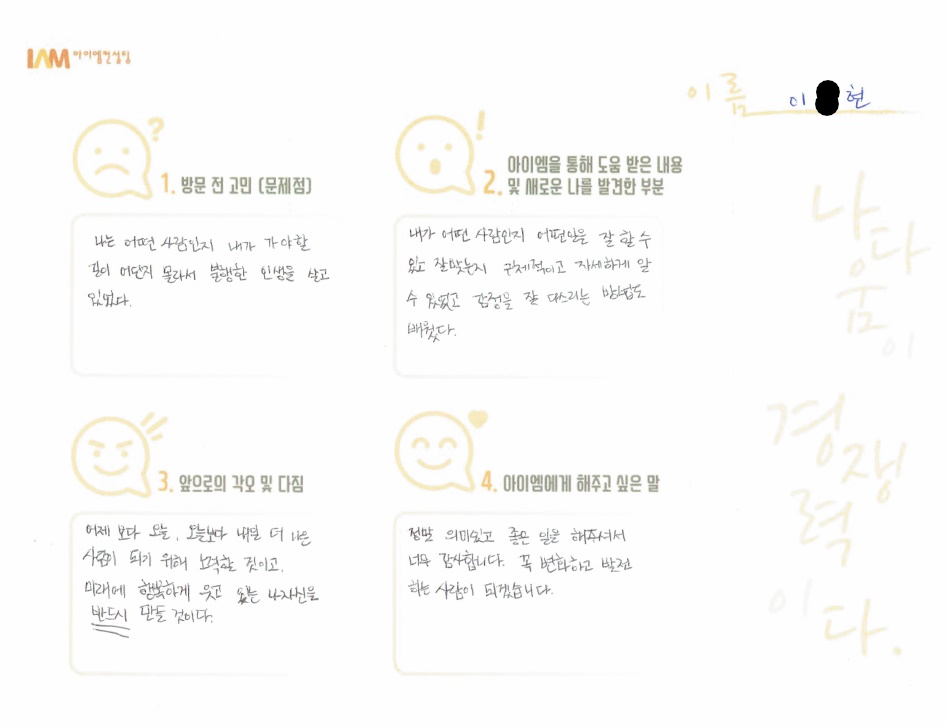 IAM 아이엠컨설팅
이름 이 현
1. 방문 전 고민 (문제점)
나는 어떤 사람인지 내가 가야할
길이 어딘지 몰라서 불행한 인생을 살고
있었다.
2. 아이엠을 통해 도움 받은 내용
및 새로운 나를 발견한 부분
내가 어떤 사람인지 어떤일을 잘 할 수
있고 잘맞는지 구체적이고 자세하게 알
수 있었고 감정을 잘 다스리는 방법도
배웠다.
3. 앞으로의 각오 및 다짐
어제 보다 오늘, 오늘보다 내일 더 나은
사람이 되기 위해 노력할 것이고,
미래에 행복하게 웃고 있는 나자신을
반드시 만들 것이다.
4. 아이엠에게 해주고 싶은 말
정말 의미있고 좋은 일을 해주셔서
너무 감사합니다. 꼭 변화하고 발전
하는 사람이 되겠습니다.
나다움이
경쟁력이다.